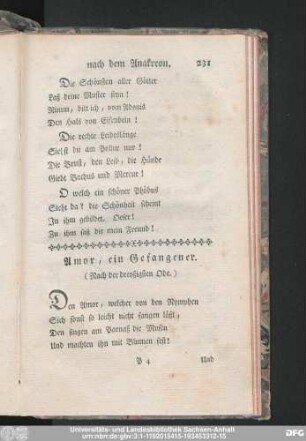 nach dem Anakreon. 231
Die Schönsten aller Götter
Laß deine Muster seyn!
Nimm, bitt ich, vom Adonis
Den Hals von Elfenbein!
Die rechte Leibeslänge
Siehst du am Pollux nur!
Die Brust, den Leib, die Hände
Giebt Bachus und Mercur!
O welch ein schöner Phöbus
Steht da! die Schönheit scheint
In ihm gebildet. Oeser!
In ihm seh ich mein Freund!
Amor, ein Gefangener.
(Nach der dreyßigsten Ode.)
Den Amor, welcher von den Nymphen
Sich sonst so leicht nicht fangen läßt,
Den fingen am Parnaß die Musen
Und machten ihn mit Blumen fest!
P 4 Und
Universitäts- und Landesbibliothek Sachsen-Anhalt
urn:nbn:de:gbv:3:1-1192015415-193453312-15
DFG